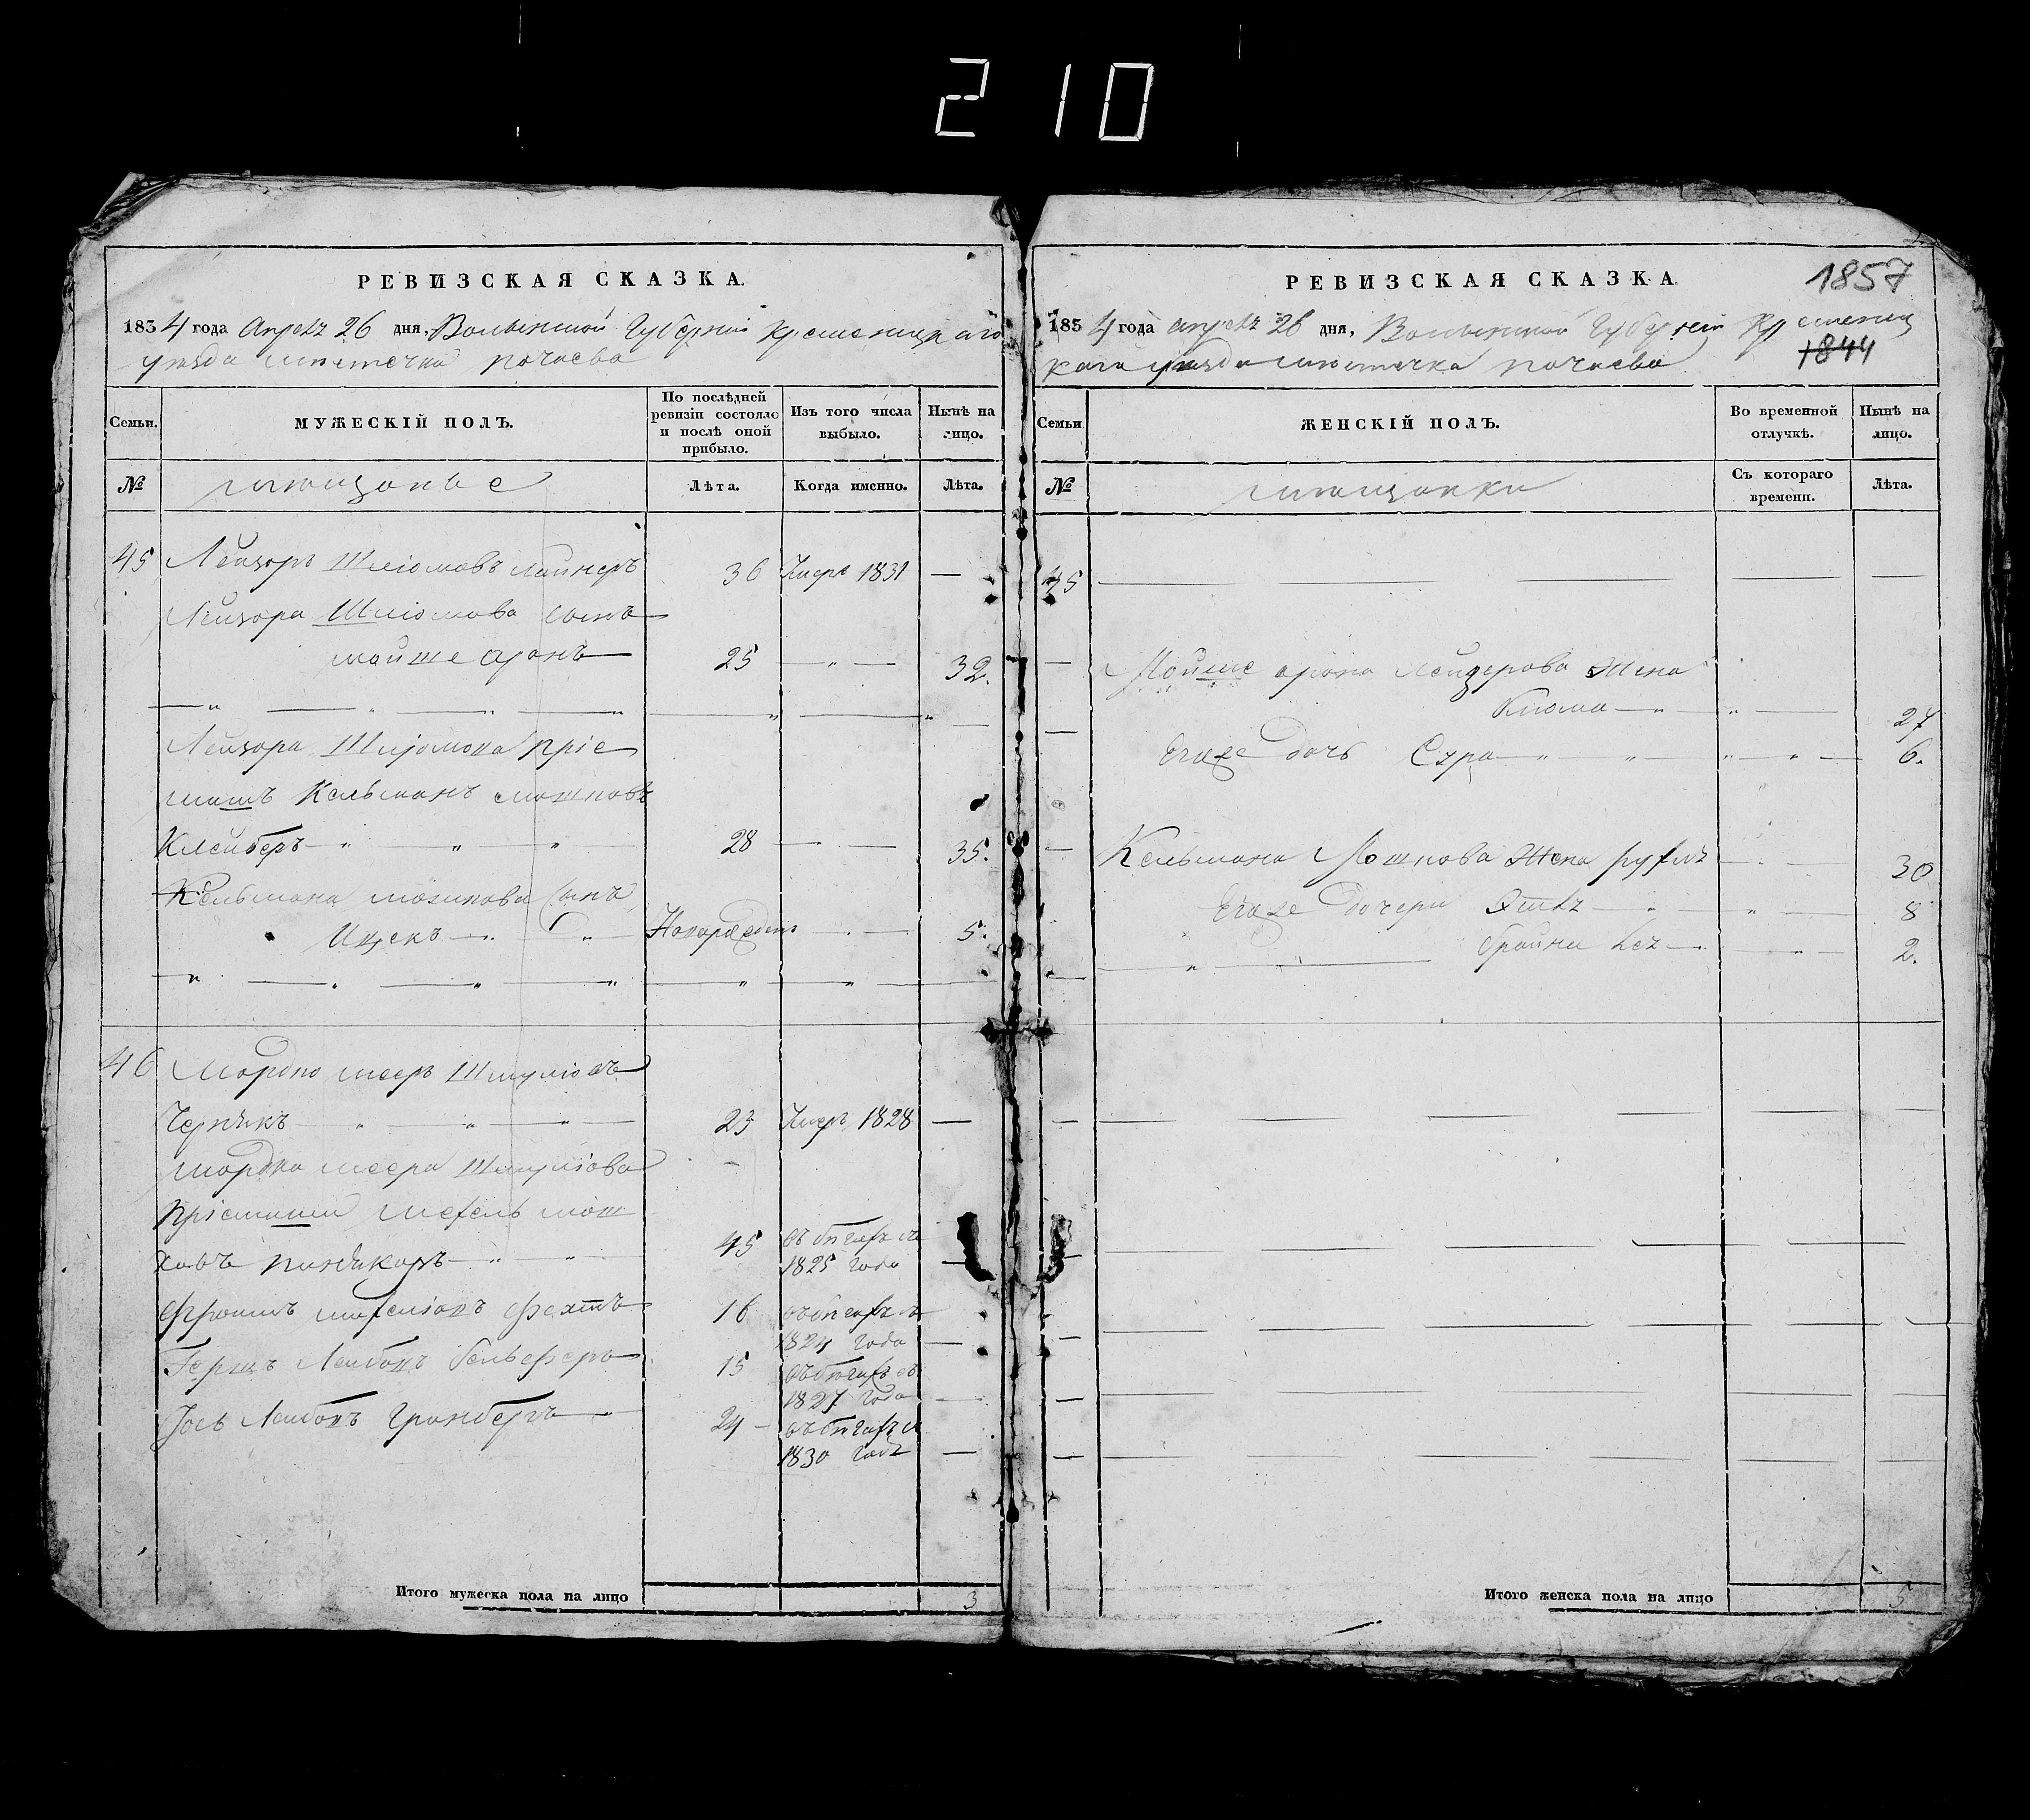 210
РЕВИЗСКАЯ СКАЗКА.
1834 года Апреля 26 дня, Волынской Губернии Кременецкаго
уезда местечка почаева
Семьи.
МУЖЕСКІЙ ПОЛЪ.
По послѣдней ревизіи состояло и послѣ оной прибыло.
Изъ того числа выбыло.
Нынѣ на лицо.
№
мещане
Лѣта.
Когда именно.
Лѣта.
45 Лейзоръ Шліомовъ 36 Умеръ 1831 —
Лейзора Шліомова сынъ
мойше аронъ 25 — 32.
Лейзора Шліомова пріе
мышъ Кельманъ мошковъ
Клейберъ 28 — 35.
Кельмана мошкова сынъ
Ицекъ Новорожденъ — 5.
46 Мордко меер Шмуліовъ
Чернякъ 23 Умеръ 1828 —
мордка меера Шмуліова
пріемыши
ховъ 45 въ бегахъ съ
1825 года —
16 въ бегахъ съ
1824 года —
Герш Лейбовъ 15 въ бегахъ съ
1827 года —
Йось Лейбовъ Гринбергъ 24 въ бегахъ съ
1830 года —
Итого мужеска пола на лицо 3
РЕВИЗСКАЯ СКАЗКА.
1857
1834 года апреля 26 дня, Волынской Губернии Кременец
каго уезда местечка почаева
1844
Семьи
ЖЕНСКІЙ ПОЛЪ.
Во временной отлучкѣ.
Нынѣ на лицо.
№
мещанки
Съ котораго времени.
Лѣта.
45
Мойше арона Лейзерова жена
27
Егоже дочь Сура 6.
Кельмана Мошкова жена рухля 30
Егоже дочери 8
брайна 2.
Итого женска пола на лицо 5